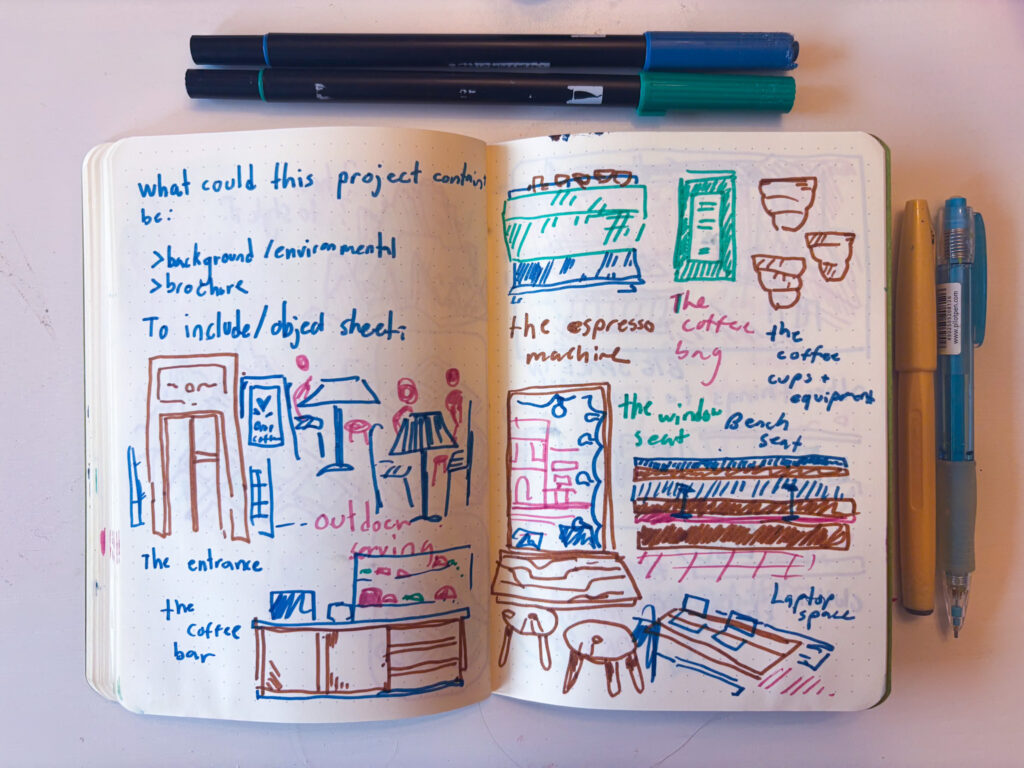 What could this project contain
be:
>background/environmental
>brochure
To include/object sheet:
The entrance
outdoor
serving
the
coffee
bar
the espresso
machine
The
coffee
bag
the
coffee
cups +
equipment
the window
seat
Bench
seat
Laptop
space
www.pilotpen.com